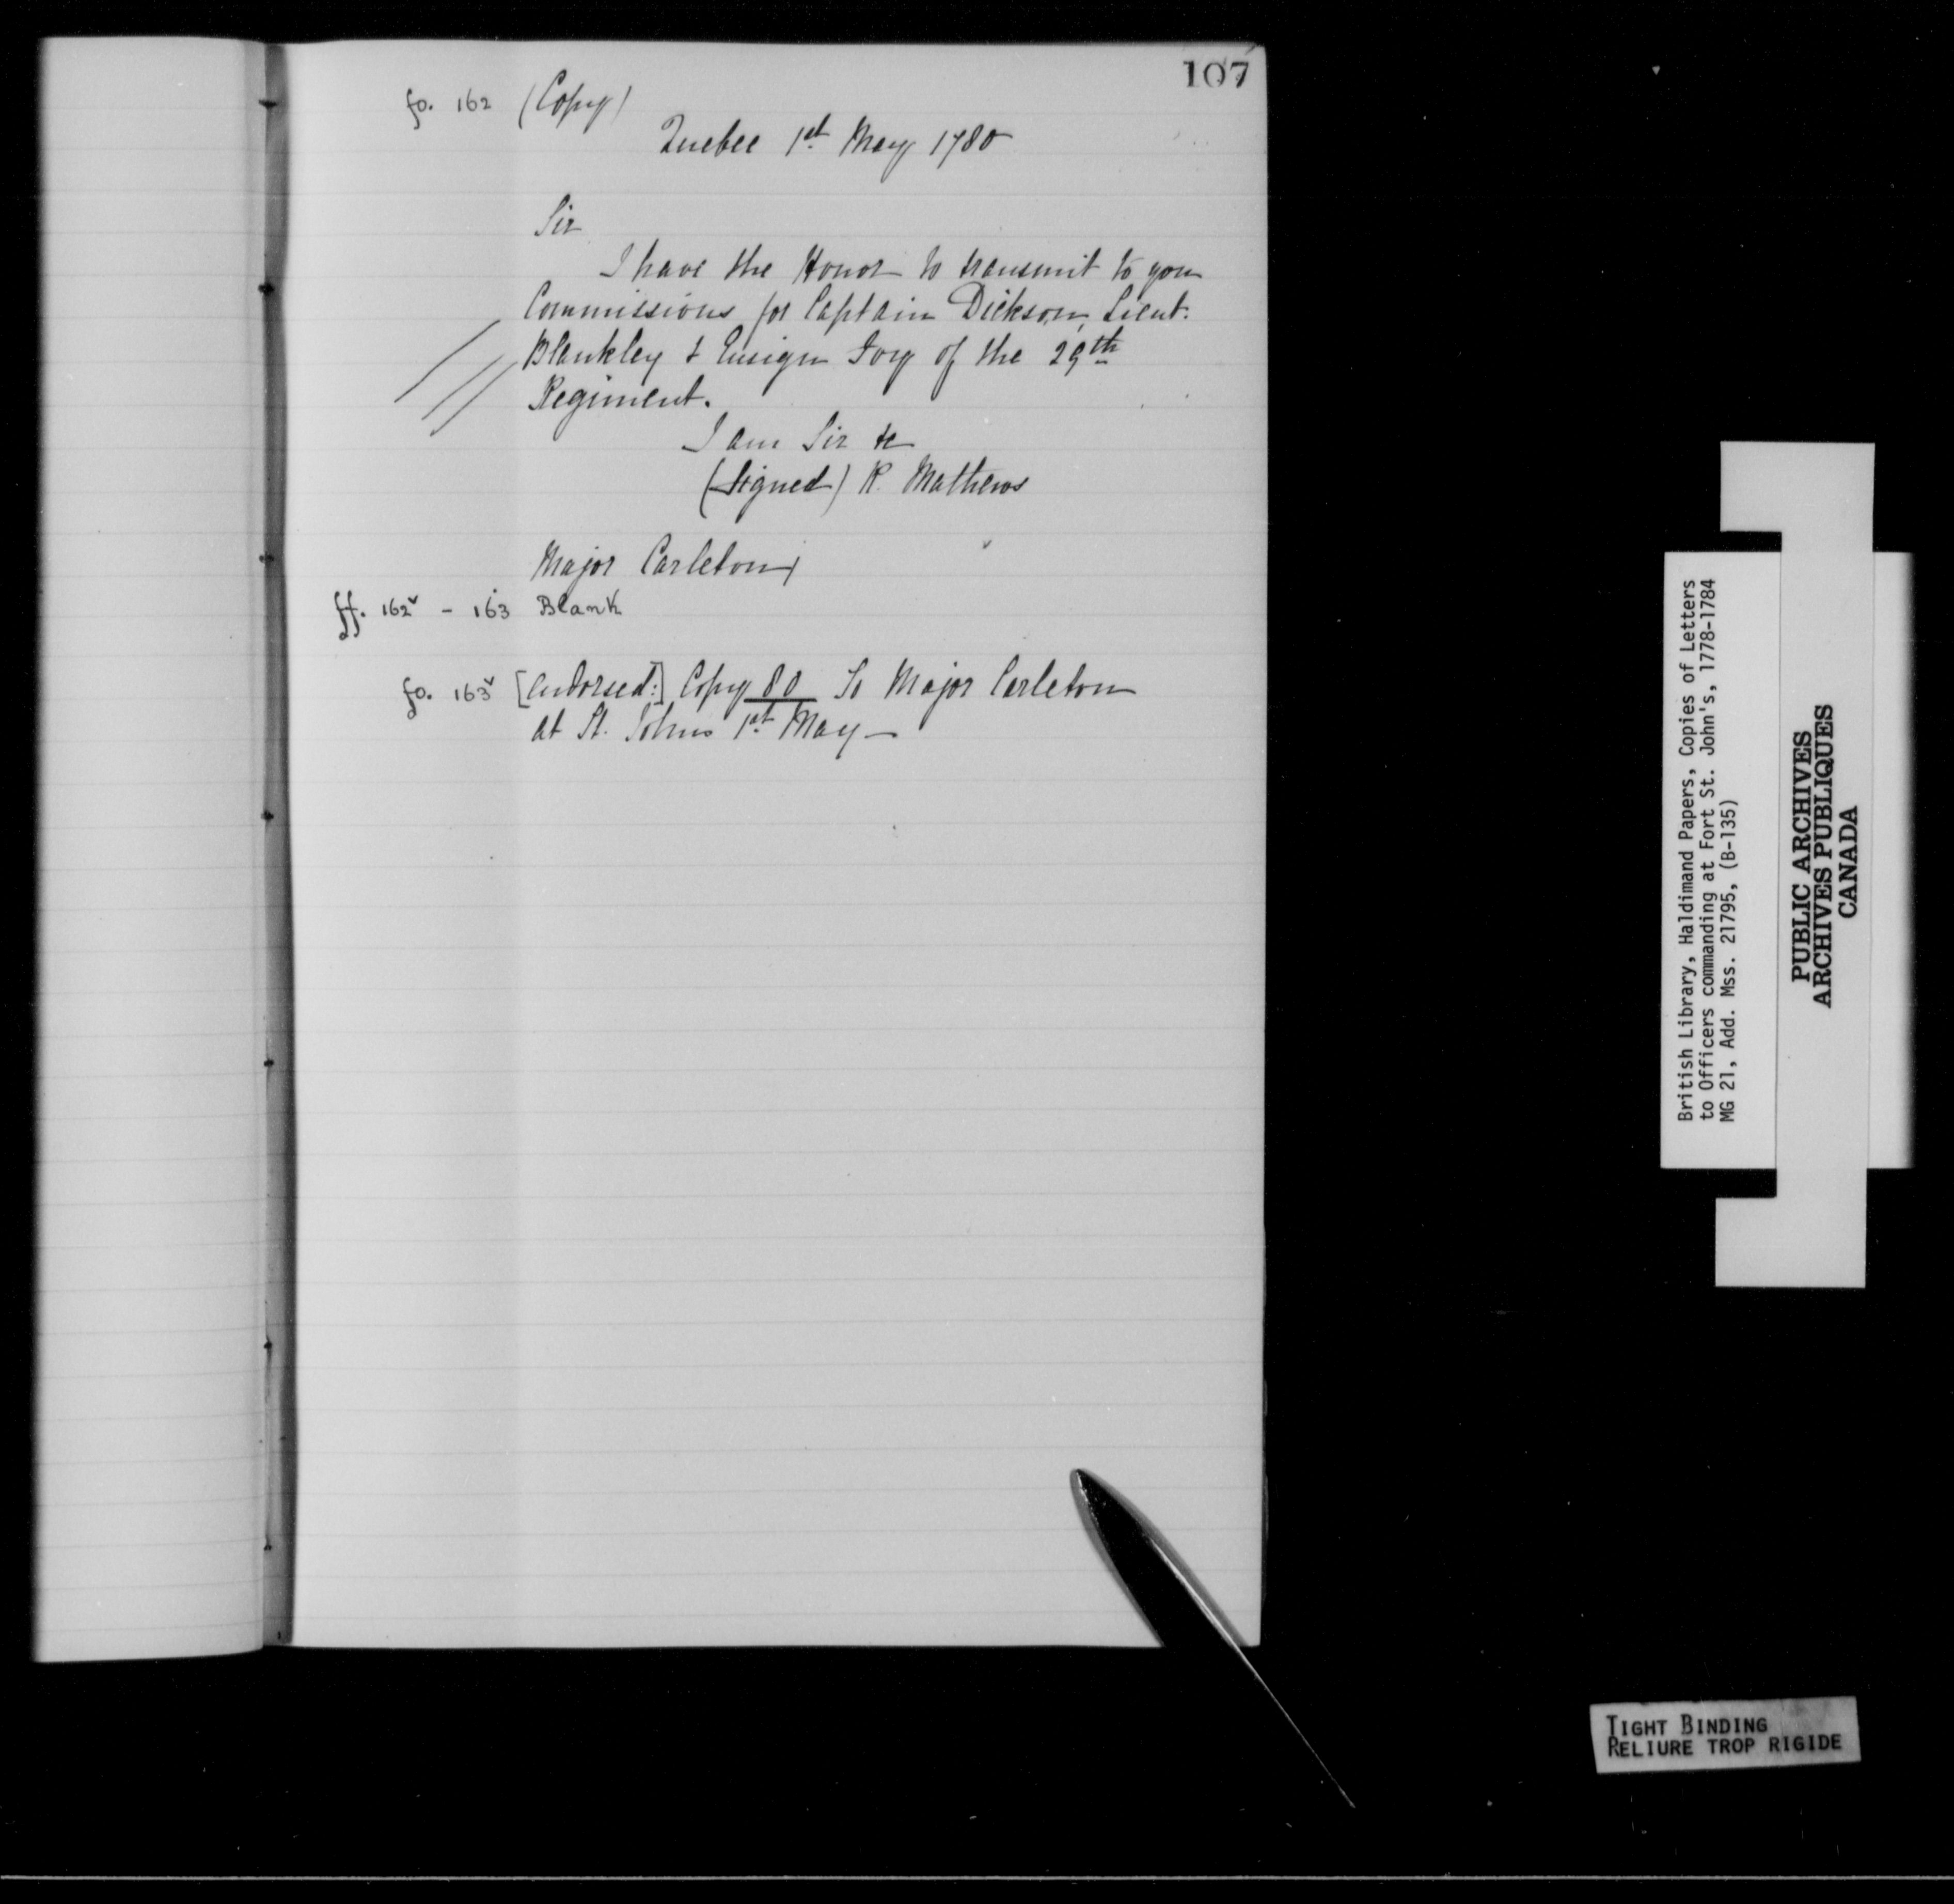 107
fo. 162 (Copy)
Quebec 1st May 1780
Sir
I have the Honor to transmit to you
Commissions for Captain Dickson, Lieut.
Blankley & Ensign Ivey of the 29th
Regiment.
I am Sir &c
(Signed) R. Mathews
Major Carleton
ff. 162v - 163 Blank
fo. 163v [endorsed:] Copy 80 To Major Carleton
at St. Johns 1st May —
British Library, Haldimand Papers, Copies of Letters
to Officers commanding at Fort St. John's, 1778-1784
MG 21, Add. Mss. 21795, (B-135)
PUBLIC ARCHIVES
ARCHIVES PUBLIQUES
CANADA
TIGHT BINDING
RELIURE TROP RIGIDE